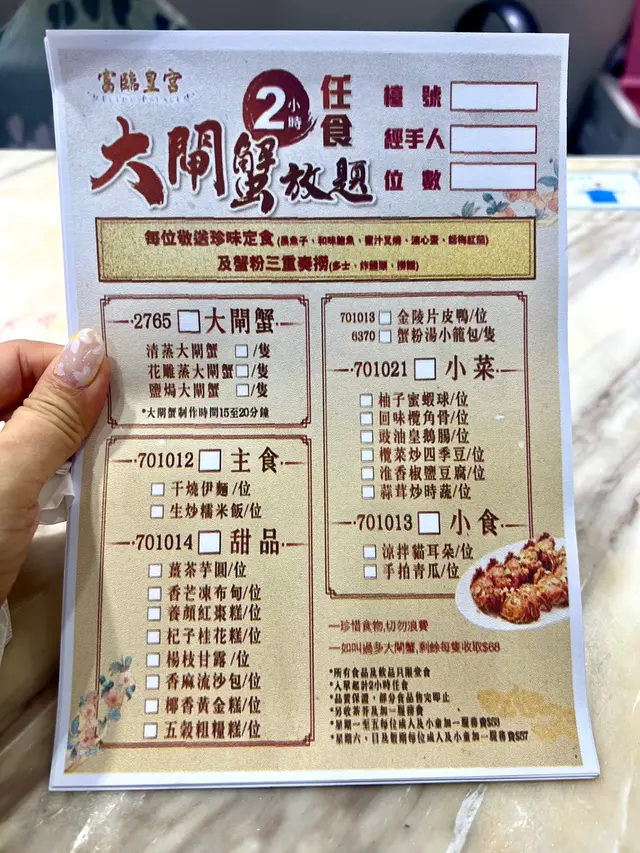 富臨皇宮
2小時
任食
大閘蟹放題
檯 號
經手人
位 數
每位敬送珍味定食(黑魚子、和味鮑魚、蜜汁叉燒、溏心蛋、話梅紅茄)
及蟹粉三重奏撈(多士、炸饅頭、撈麵)
2765 □ 大閘蟹
清蒸大閘蟹 □/隻
花雕蒸大閘蟹 □/隻
鹽焗大閘蟹 □/隻
*大閘蟹制作時間15至20分鐘
701012 □ 主食
□ 干燒伊麵/位
□ 生炒糯米飯/位
701014 □ 甜品
□ 薑茶芋圓/位
□ 香芒凍布甸/位
□ 養顏紅棗糕/位
□ 杞子桂花糕/位
□ 楊枝甘露/位
□ 香麻流沙包/位
□ 椰香黃金糕/位
□ 五穀粗糧糕/位
701013 □ 金陵片皮鴨/位
6370 □ 蟹粉湯小籠包/隻
701021 □ 小菜
□ 柚子蜜蝦球/位
□ 回味欖角骨/位
□ 豉油皇鵝腸/位
□ 欖菜炒四季豆/位
□ 淮香椒鹽豆腐/位
□ 蒜茸炒時蔬/位
701013 □ 小食
□ 涼拌貓耳朵/位
□ 手拍青瓜/位
—珍惜食物,切勿浪費
—如叫過多大閘蟹,剩餘每隻收取$68
*所有食品及飲品只限堂食
*入席起計2小時任食
*品質保證，部分食品售完即止
*另收茶芥及加一服務費
*星期一至五每位成人及小童加一服務費$53
*星期六、日及假期每位成人及小童加一服務費$57